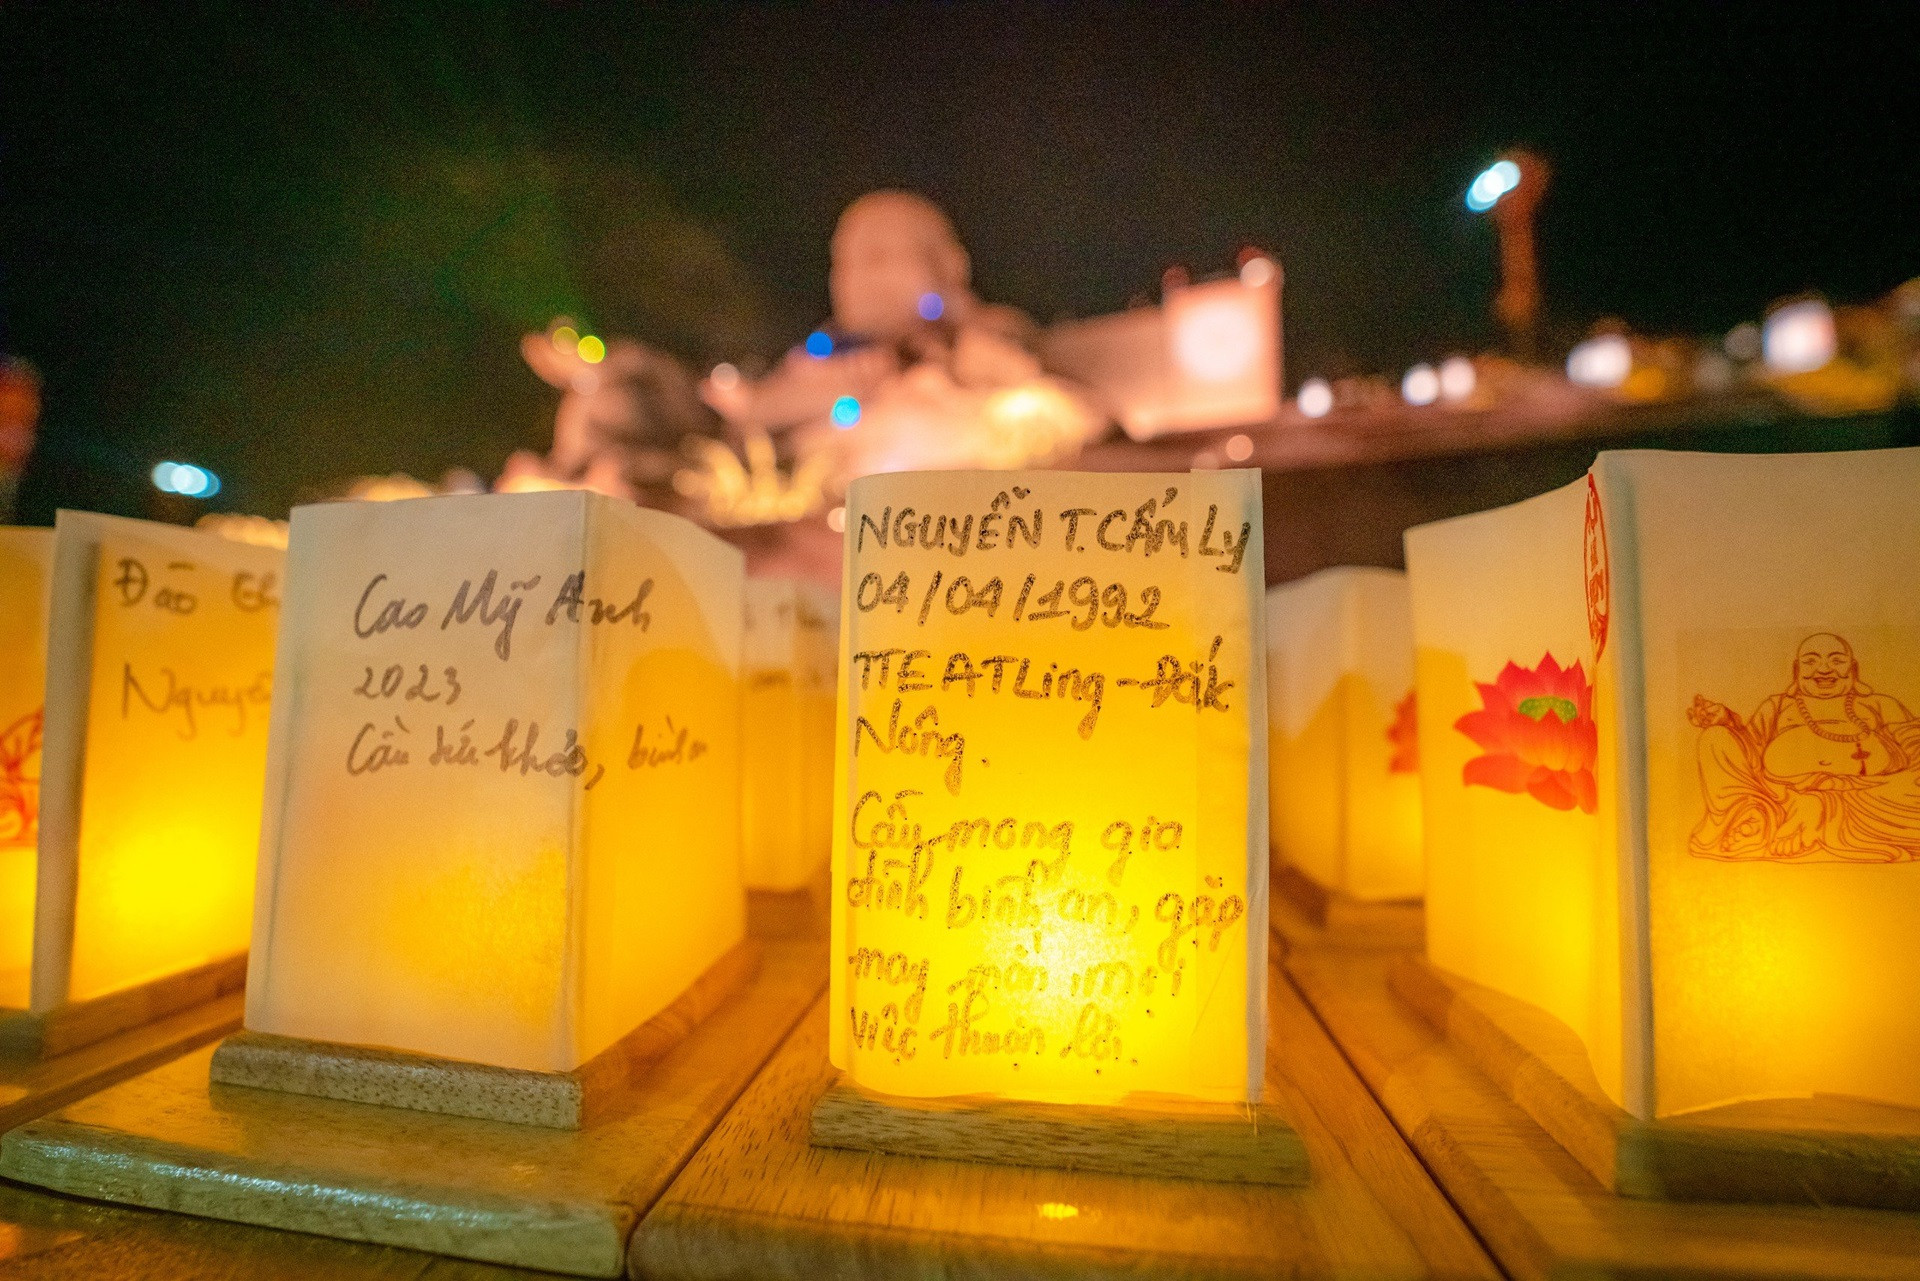 Đào Th
Nguyễ
Cao Mỹ Anh
2023
Cầu sức khỏe, bình
NGUYỄN T. CẨM Ly
04/04/1992
TT EATLing - Đăk
Nông.
Cầu mong gia
đình bình an, gặp
may mắn mọi
việc thuận lợi.